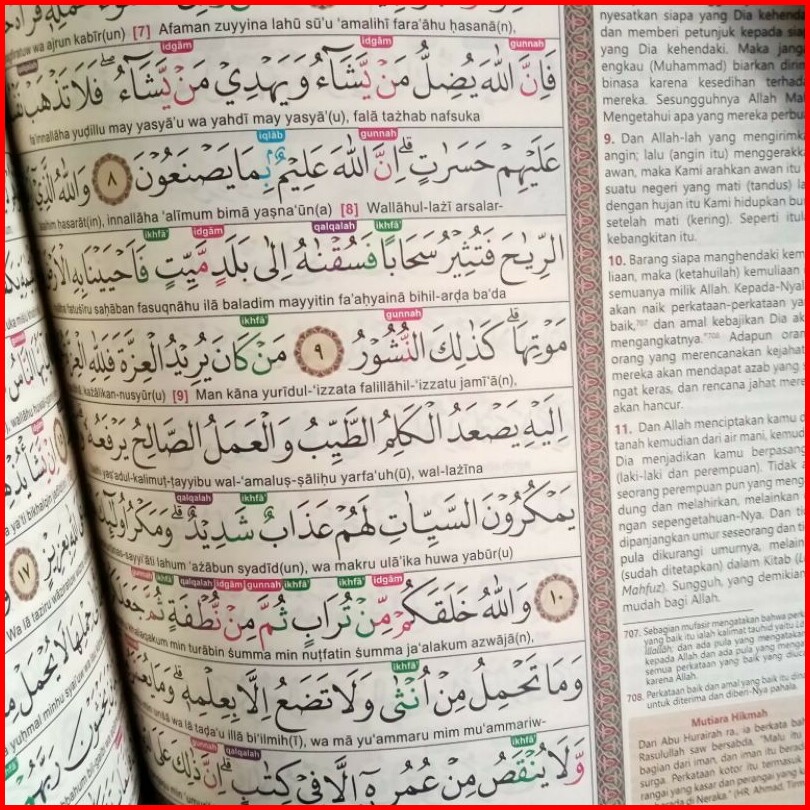 قدير(un) [7] Afaman zuyyina lahū sū'u 'amalihī fara'āhu ḥasanā(n),
idgām idgām gunnah
فَاِنَّ اللّٰهَ يُضِلُّ مَنْ يَّشَاۤءُ وَيَهْدِيْ مَنْ يَّشَاۤءُۖ فَلَا تَذْهَبْ
fa'innallāha yuḍillu may yasyā'u wa yahdī may yasyā'(u), falā tażhab nafsuka
iqlāb gunnah
عَلَيْهِمْ حَسَرٰتٍۗ اِنَّ اللّٰهَ عَلِيْمٌۢ بِمَا يَصْنَعُوْنَ ٨ وَاللّٰهُ الَّذِيْٓ
ḥasarāt(in), innallāha 'alīmum bimā yaṣna'ūn(a) [8] Wallāhul-lażī arsalar-
ikhfā' idgām qalqalah ikhfā'
الرِّيٰحَ فَتُثِيْرُ سَحَابًا فَسُقْنٰهُ اِلٰى بَلَدٍ مَّيِّتٍ فَاَحْيَيْنَا بِهِ الْاَرْضَ
fatuṡīru saḥāban fasuqnāhu ilā baladim mayyitin fa'aḥyainā bihil-arḍa ba'da
ikhfā' gunnah
مَوْتِهَاۗ كَذٰلِكَ النُّشُوْرُ ٩ مَنْ كَانَ يُرِيْدُ الْعِزَّةَ فَلِلّٰهِ
każālikan-nusyūr(u) [9] Man kāna yurīdul-'izzata falillāhil-'izzatu jamī'ā(n),
اِلَيْهِ يَصْعَدُ الْكَلِمُ الطَّيِّبُ وَالْعَمَلُ الصَّالِحُ يَرْفَعُهٗ
yaṣ'adul-kalimuṭ-ṭayyibu wal-'amaluṣ-ṣāliḥu yarfa'uh(ū), wal-lażīna
qalqalah ikhfā'
يَمْكُرُوْنَ السَّيِّاٰتِ لَهُمْ عَذَابٌ شَدِيْدٌۗ وَمَكْرُ اُولٰۤىِٕكَ
sayyi'āti lahum 'ażābun syadīd(un), wa makru ulā'ika huwa yabūr(u)
gunnah ikhfā' qalqalah idgām gunnah ikhfā' ikhfā' idgām
١٠ وَاللّٰهُ خَلَقَكُمْ مِّنْ تُرَابٍ ثُمَّ مِنْ نُّطْفَةٍ ثُمَّ جَعَلَكُمْ
khalaqakum min turābin ṡumma min nuṭfatin ṡumma ja'alakum azwājā(n),
ikhfā'
وَمَا تَحْمِلُ مِنْ اُنْثٰى وَلَا تَضَعُ اِلَّا بِعِلْمِهٖۗ وَمَا يُعَمَّرُ
unṡā wa lā taḍa'u illā bi'ilmih(ī), wa mā yu'ammaru mim mu'ammariw-
gunnah qalqalah ikhfā'
وَّلَا يُنْقَصُ مِنْ عُمُرِهٖٓ اِلَّا فِيْ كِتٰبٍۗ اِنَّ ذٰلِكَ عَلَى
nyesatkan siapa yang Dia kehenda
dan memberi petunjuk kepada siap
yang Dia kehendaki. Maka jang
engkau (Muhammad) biarkan dirim
binasa karena kesedihan terhada
mereka. Sesungguhnya Allah Ma
Mengetahui apa yang mereka perbu
9. Dan Allah-lah yang mengirimk
angin; lalu (angin itu) menggerakk
awan, maka Kami arahkan awan itu
suatu negeri yang mati (tandus) la
dengan hujan itu Kami hidupkan bu
setelah mati (kering). Seperti itul
kebangkitan itu.
10. Barang siapa menghendaki kem
liaan, maka (ketahuilah) kemuliaan
semuanya milik Allah. Kepada-Nyal
akan naik perkataan-perkataan ya
baik,707 dan amal kebajikan Dia ak
mengangkatnya.*708 Adapun oran
orang yang merencanakan kejahat
mereka akan mendapat azab yang s
ngat keras, dan rencana jahat mere
akan hancur.
11. Dan Allah menciptakan kamu d
tanah kemudian dari air mani, kemud
Dia menjadikan kamu berpasang
(laki-laki dan perempuan). Tidak
seorang perempuan pun yang meng
dung dan melahirkan, melainkan
ngan sepengetahuan-Nya. Dan ti
dipanjangkan umur seseorang dan t
pula dikurangi umurnya, melain
(sudah ditetapkan) dalam Kitab (L
Mahfuz). Sungguh, yang demikian
mudah bagi Allah.
707. Sebagian mufasir mengatakan bahwa perk
yang baik itu ialah kalimat tauhid yaitu
illallah; dan ada pula yang mengatakan
kepada Allah dan ada pula yang mengat
semua perkataan yang baik yang diuc
karena Allah.
708. Perkataan baik dan amal yang baik itu din
untuk diterima dan diberi-Nya pahala.
Mutiara Hikmah
Dari Abu Hurairah ra, ia berkata ba
Rasulullah saw bersabda, "Malu itu
bagian dari iman, dan iman itu berad
surga. Perkataan kotor itu termasuk
rangai yang kasar dan perangai yang
berada di Neraka" (HR. Ahmad, Tirm